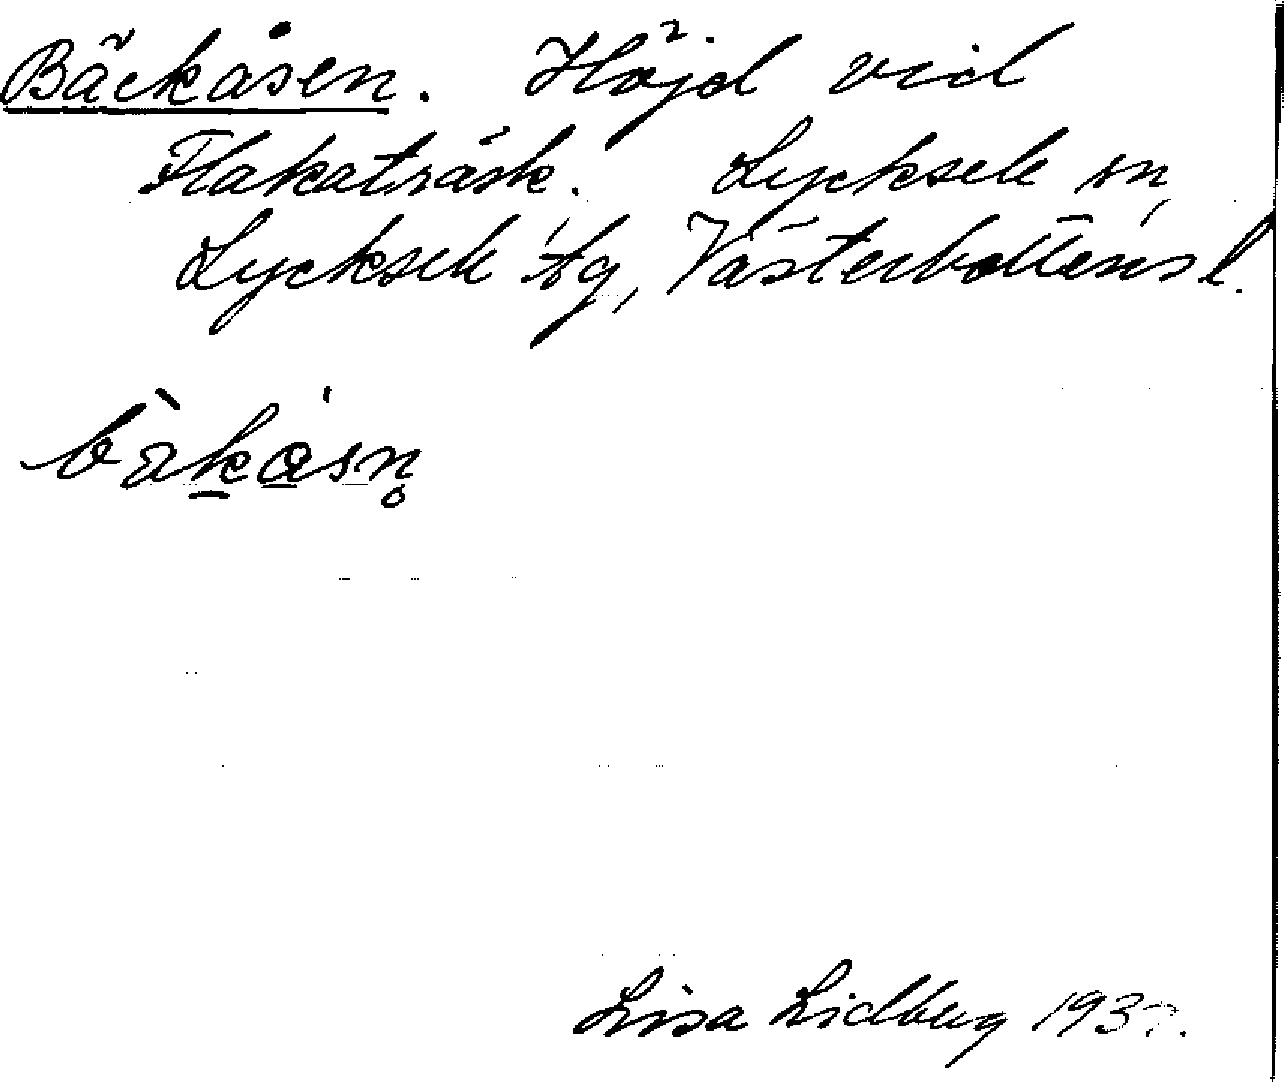 Bäckåsen. Höjd vid
Flakaträsk. Lycksele sn,
Lycksele tg, Västerbottens l.
Lisa Lidberg